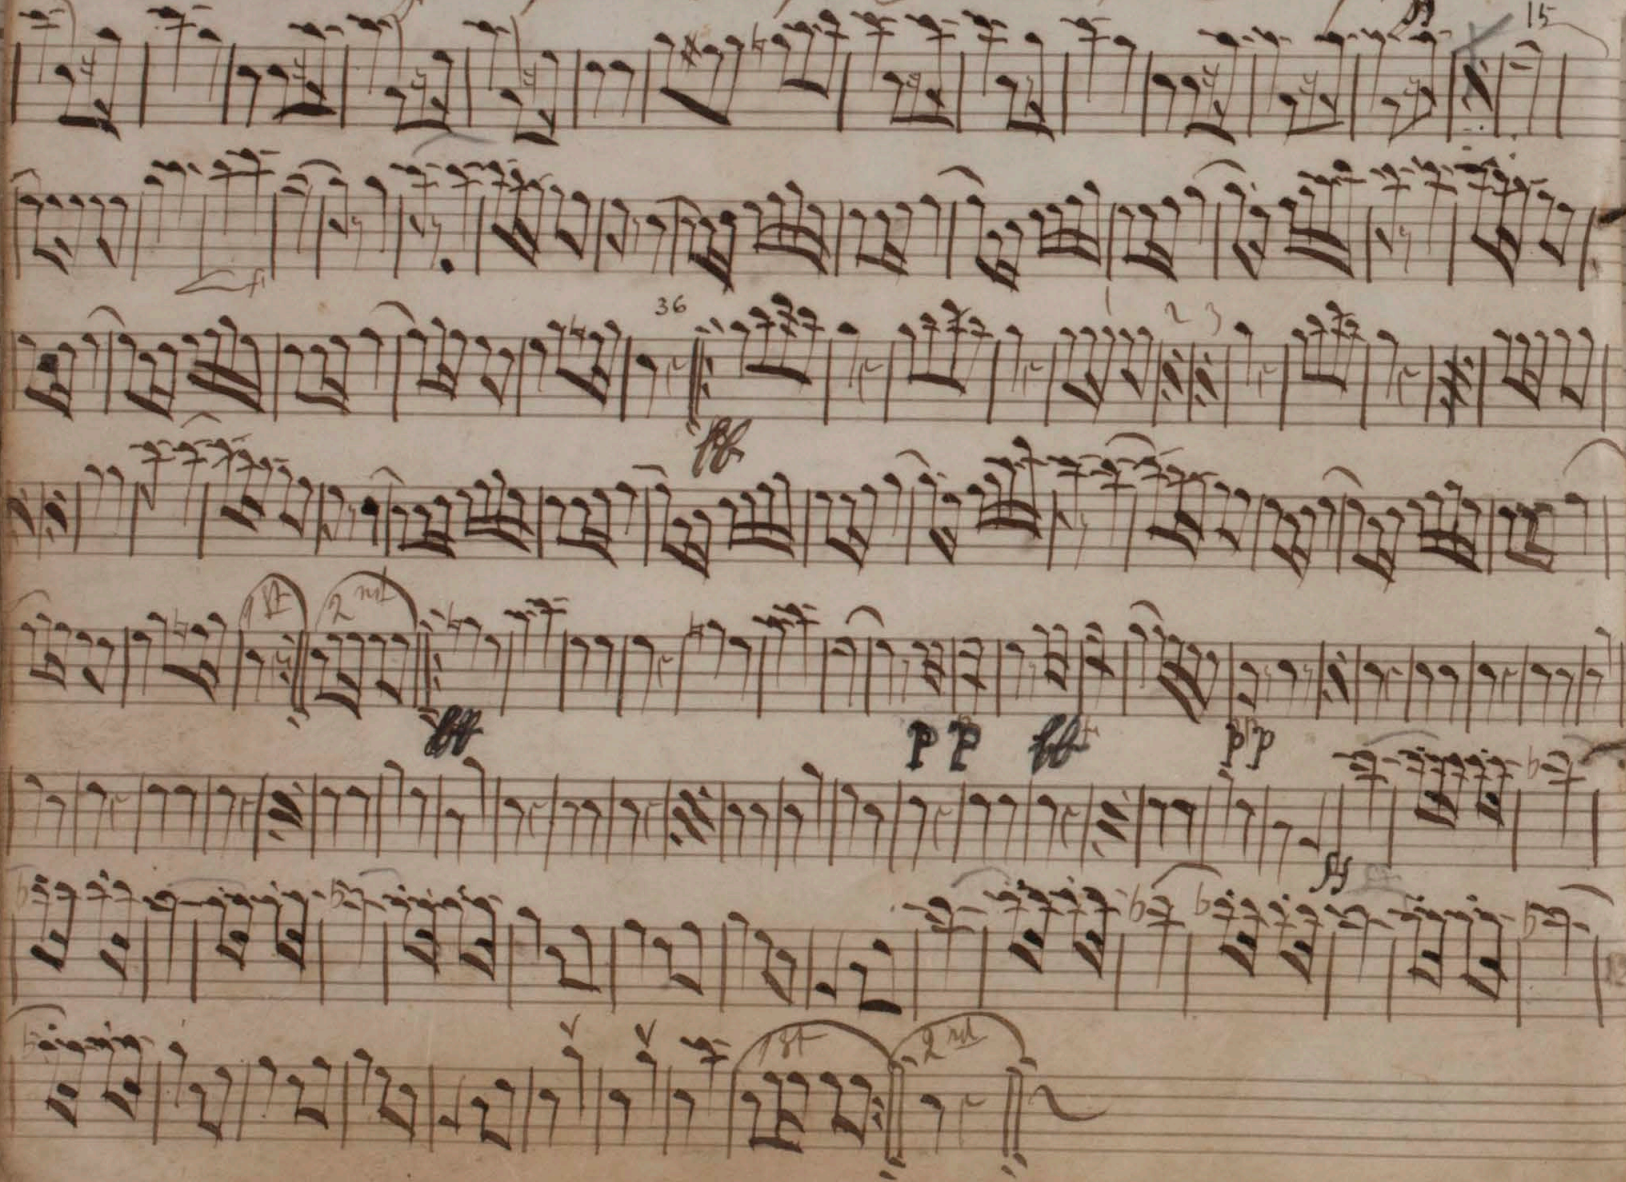 ff 15
f
36 1 2 3
ff
1st 2nd
ff pp ff pp
ff
1st 2nd